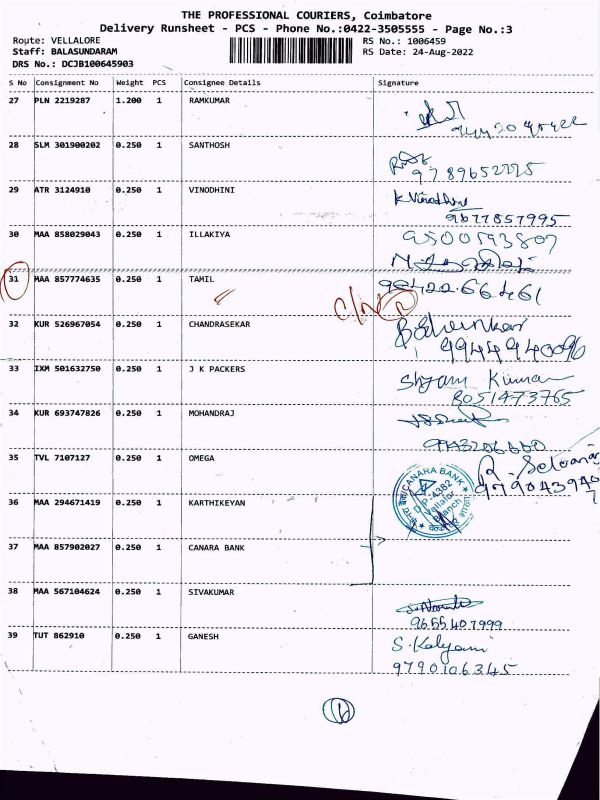 THE PROFESSIONAL COURIERS, Coimbatore
Delivery Runsheet - PCS - Phone No.:0422-3505555 - Page No.:3
Route: VELLALORE
Staff: BALASUNDARAM
DRS No.: DCJB100645903
RS No.: 1006459
RS Date: 24-Aug-2022
S No Consignment No Weight PCS Consignee Details Signature
27 PLN 2219287 1.200 1 RAMKUMAR
28 SLM 301900202 0.250 1 SANTHOSH
9789652775
29 ATR 3124910 0.250 1 VINODHINI K Vinodhini
9677857995
30 MAA 858029043 0.250 1 ILLAKIYA 9500593807
31 MAA 857774635 0.250 1 TAMIL
C/N R
99422.66461
32 KUR 526967054 0.250 1 CHANDRASEKAR
9944940090
33 IXM 501632750 0.250 1 J K PACKERS Shyam Kumar
8051473765
34 KUR 693747826 0.250 1 MOHANDRAJ
9943206660
35 TVL 7107127 0.250 1 OMEGA
CANARA BANK
DP-4382
Vellalor
Branch
36 MAA 294671419 0.250 1 KARTHIKEYAN
37 MAA 857902027 0.250 1 CANARA BANK
38 MAA 567104624 0.250 1 SIVAKUMAR
9655407999
39 TUT 862910 0.250 1 GANESH S. Kalyani
9790106345